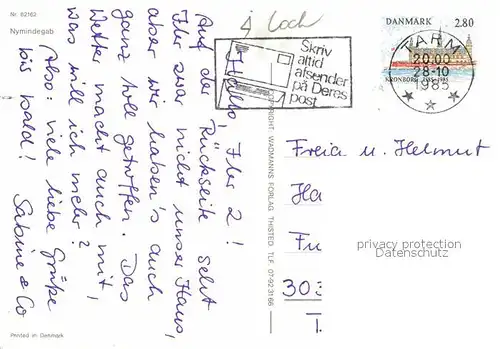 Nr. 62162
Nymindegab
Hallo, Ihr 2!
Auf der Rückseite seht
Ihr zwar nicht unser Haus,
aber wir haben's auch
ganz toll getroffen. Das
Wetter macht auch mit,
was will ich mehr?
Also: viele liebe Grüße
bis bald! Sabine & Co
Printed in Denmark
COPYRIGHT: WADMANNS FORLAG THISTED. TLF. 07-92 31 66
Loch
Skriv
altid
afsender
på Deres
post
DANMARK 2.80
TARM
20.00
28-10
1985
KRONBORG 1585-1985
Freia u. Helmut
Ha
Fu
303
T
privacy protection
Datenschutz